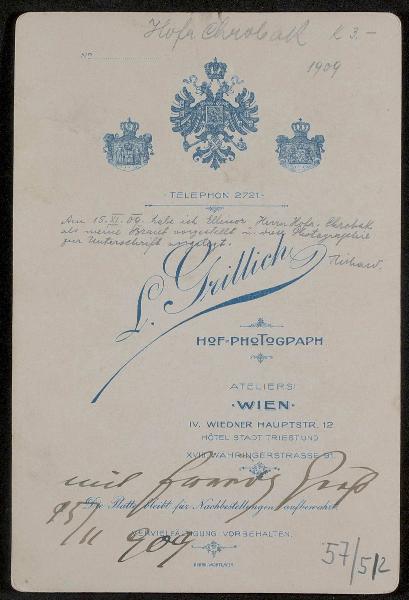 Hofr Chrobak K 3.–
No
1909
TELEPHON 2721
Am 15. XI. 09. habe ich Ellinor Herrn Hofr. Chrobak
als meine Braut vorgestellt u. diese Photographie
zur Unterschrift vorgelegt.
Richard.
L. Grillich
HOF-PHOTOGRAPH
ATELIERS:
WIEN
IV. WIEDNER HAUPTSTR. 12
HÔTEL STADT TRIEST UND
XVIII. WÄHRINGERSTRASSE 91.
mit Gruß
Die Platte bleibt für Nachbestellungen aufbewahrt.
15/11 909
VERVIELFÄLTIGUNG VORBEHALTEN.
57/5/2